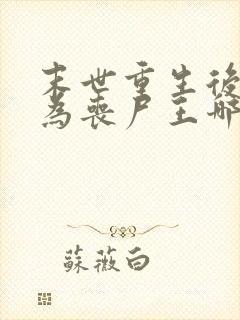 末世重生後
為喪尸王哪
蘇薇白